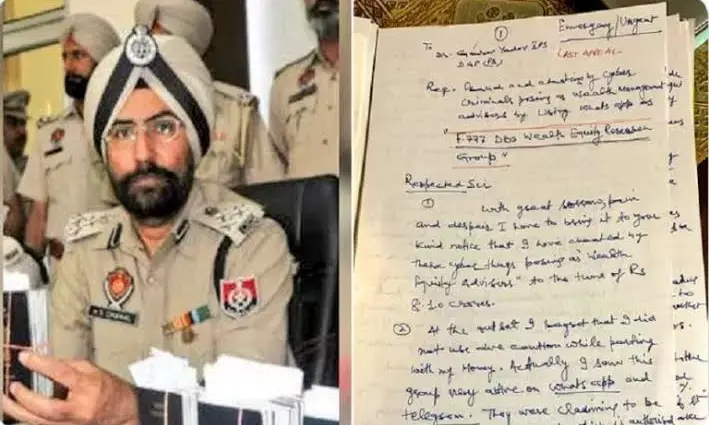 A S CHAHAL
①
Emergency/Urgent
To Dr. Gaurav Yadav IPS
DGP (PB)
LAST APPEAL
Reg. Fraud and cheating by cyber
criminals posing as wealth management
advisors by using whats app as
"F-777 DBS Wealth Equity Research
Group"
Respected Sir
① With great sorrow, pain
and despair I have to bring it to your
kind notice that I have cheated by
these cyber thugs posing as wealth
Equity Advisors" to the tune of Rs
8.10 crores.
② At the outset I regret that I did
not use due caution while parting
with my money. Actually I saw this
group very active on whats app and
telegram. They were claiming to be